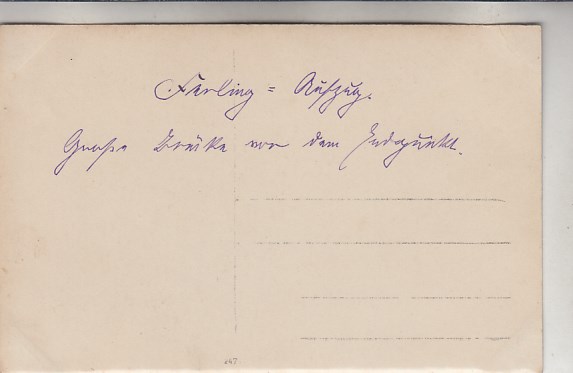 Ferling = Aufzug.
Große Brücke vor dem Endpunkt.